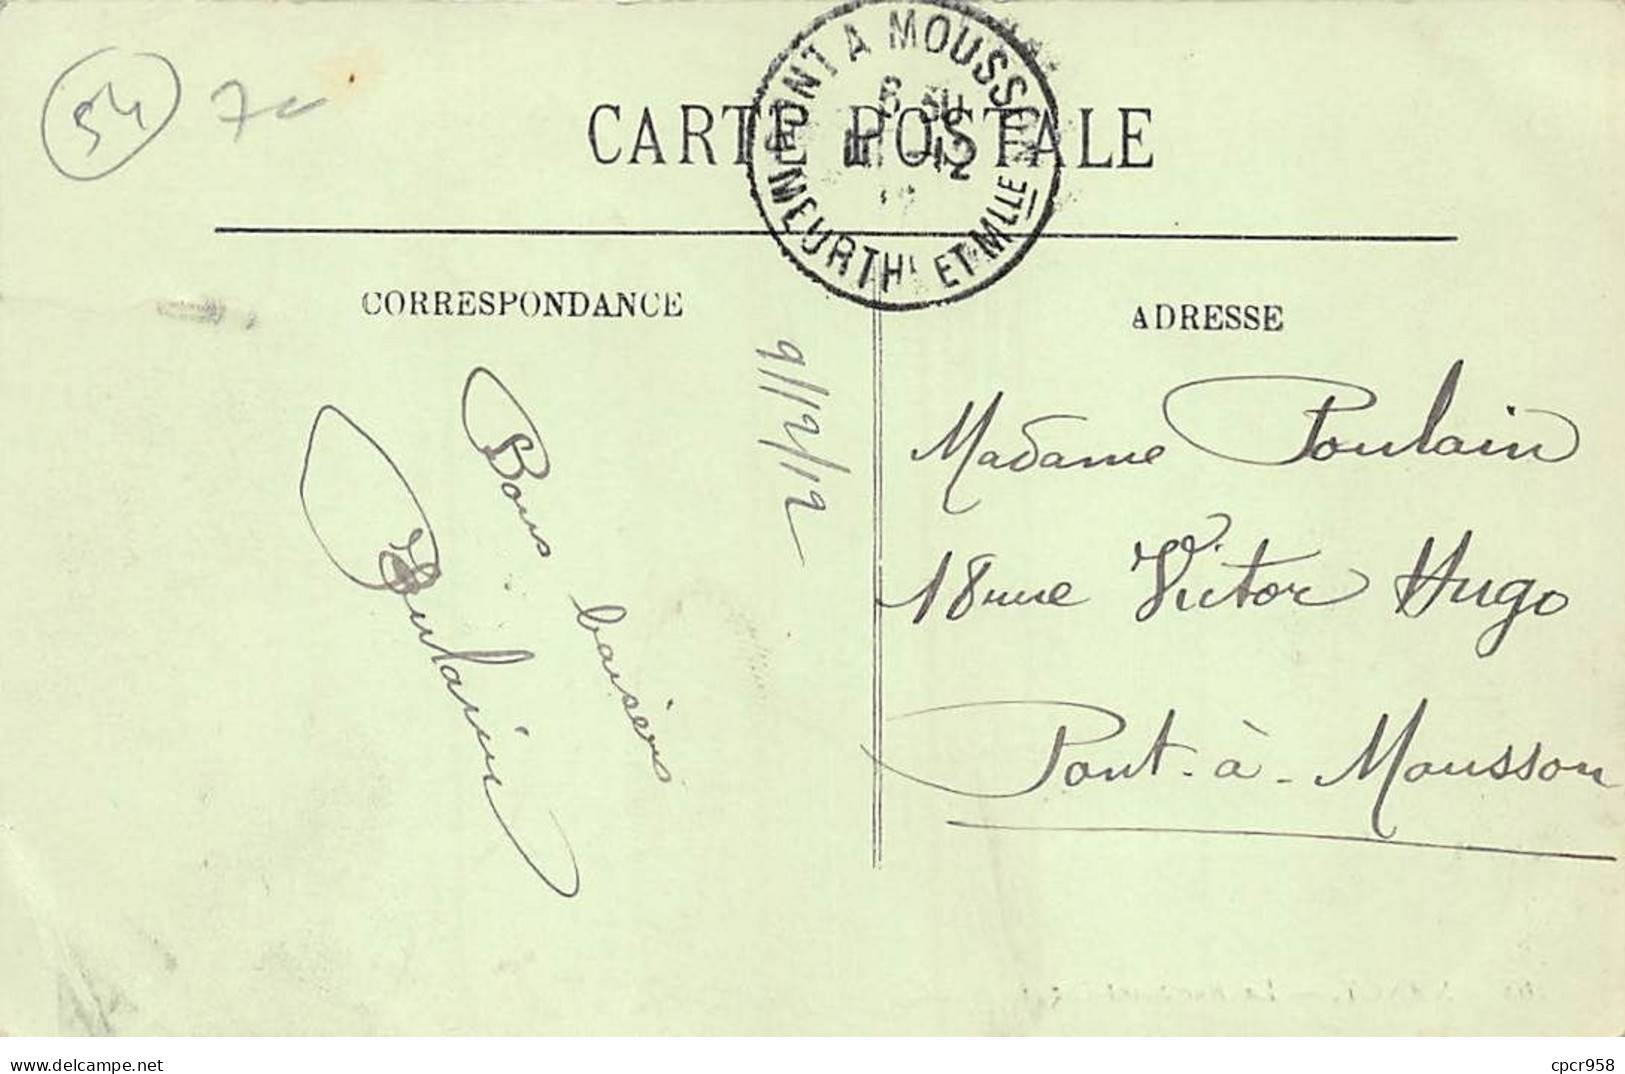 54
7c
CARTE POSTALE
PONT A MOUSSON
6 30
12
MEURTHE ET MLLE
CORRESPONDANCE
ADRESSE
9/12/12
Bons baisers
Poulain
Madame Poulain
18 rue Victor Hugo
Pont-à-Mousson
delcampe.net
cpcr958